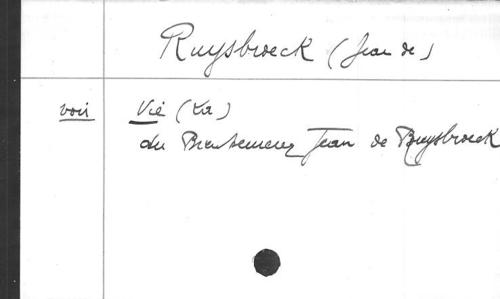 Ruysbroeck (Jean de)
voir Vie (La)
du Bienheureux Jean de Ruysbroeck